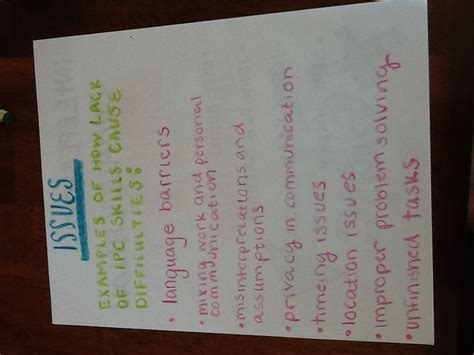 ISSUES
EXAMPLES OF HOW LACK
OF IPC SKILLS CAUSE
DIFFICULTIES:
• language barriers
• mixing work and personal
communication
• misinterpretations and
assumptions
• privacy in communication
• timeing issues
• location issues
• improper problem solving
• unfinished tasks